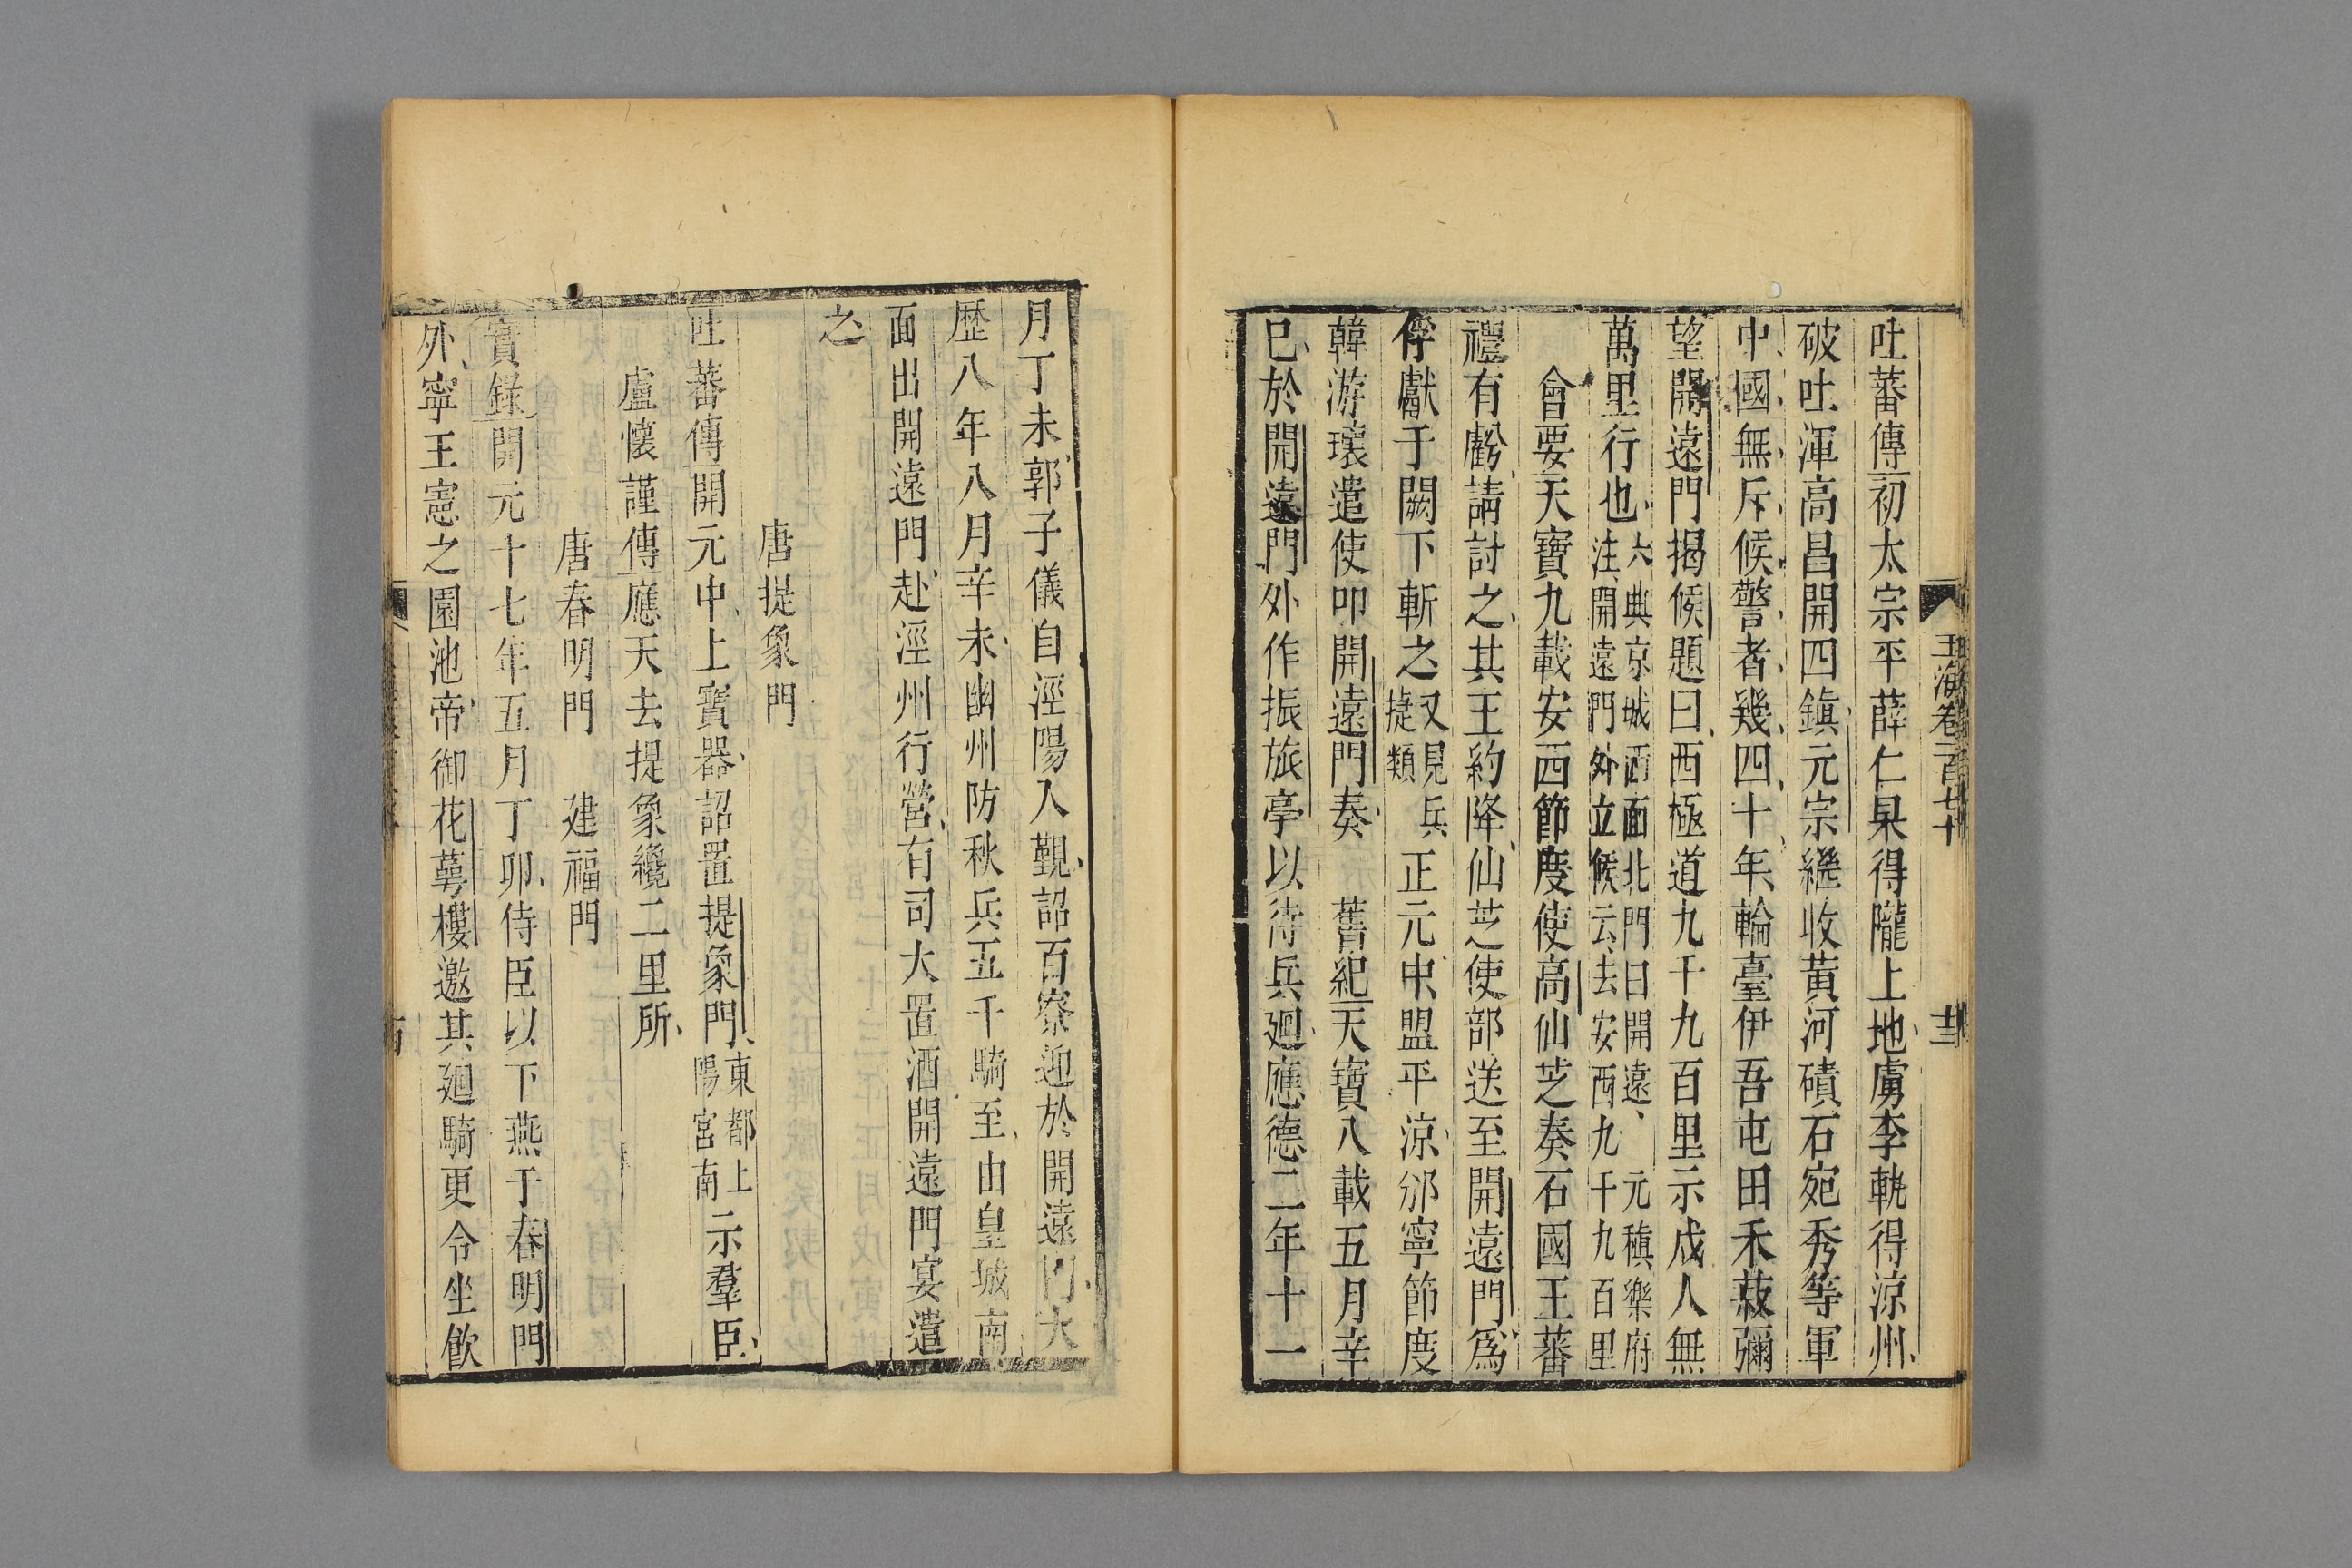 玉海卷一百七十
吐蕃傳初太宗平薛仁杲得隴上地虜李軌得涼州
破吐渾高昌開四鎮元宗繼收黃河磧石宛秀等軍
中國無斥候警者幾四十年輪臺伊吾屯田禾菽彌
望開遠門揭候題曰西極道九千九百里示戍人無
萬里行也六典京城西面北門曰開遠元稹樂府
注開遠門外立候云去安西九千九百里
會要天寶九載安西節度使高仙芝奏石國王蕃
禮有虧請討之其王約降仙芝使部送至開遠門爲
俘獻于闕下斬之又見兵
捷類正元中盟平涼邠寧節度
韓游瓌遣使叩開遠門奏　舊紀天寶八載五月辛
巳於開遠門外作振旅亭以待兵廻應德二年十一
月丁未郭子儀自涇陽入覲詔百寮迎於開遠門大
歷八年八月辛未幽州防秋兵五千騎至由皇城南
面出開遠門赴涇州行營有司大置酒開遠門宴遣
之
唐提象門
吐蕃傳開元中上寶器詔置提象門東都上
陽宮南示羣臣
盧懷謹傳應天去提象纔二里所
唐春明門　建福門
實錄開元十七年五月丁卯侍臣以下燕于春明門
外寧王憲之園池帝御花萼樓邀其廻騎更令坐飲